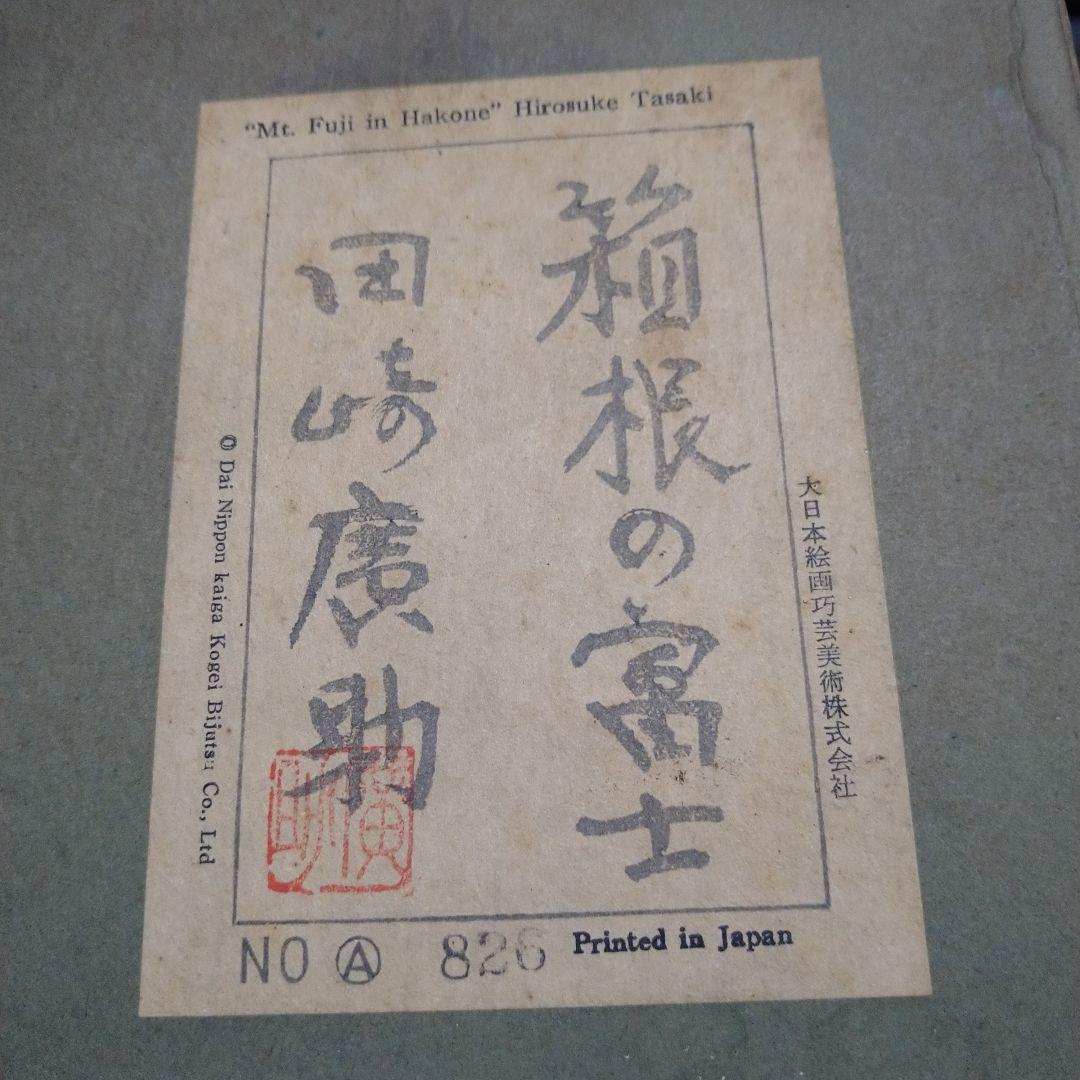 “Mt. Fuji in Hakone” Hirosuke Tasaki
大日本絵画巧芸美術株式会社
箱根の富士
田崎廣助
廣助
© Dai Nippon kaiga Kogei Bijutsu Co., Ltd
NO Ⓐ 826 Printed in Japan